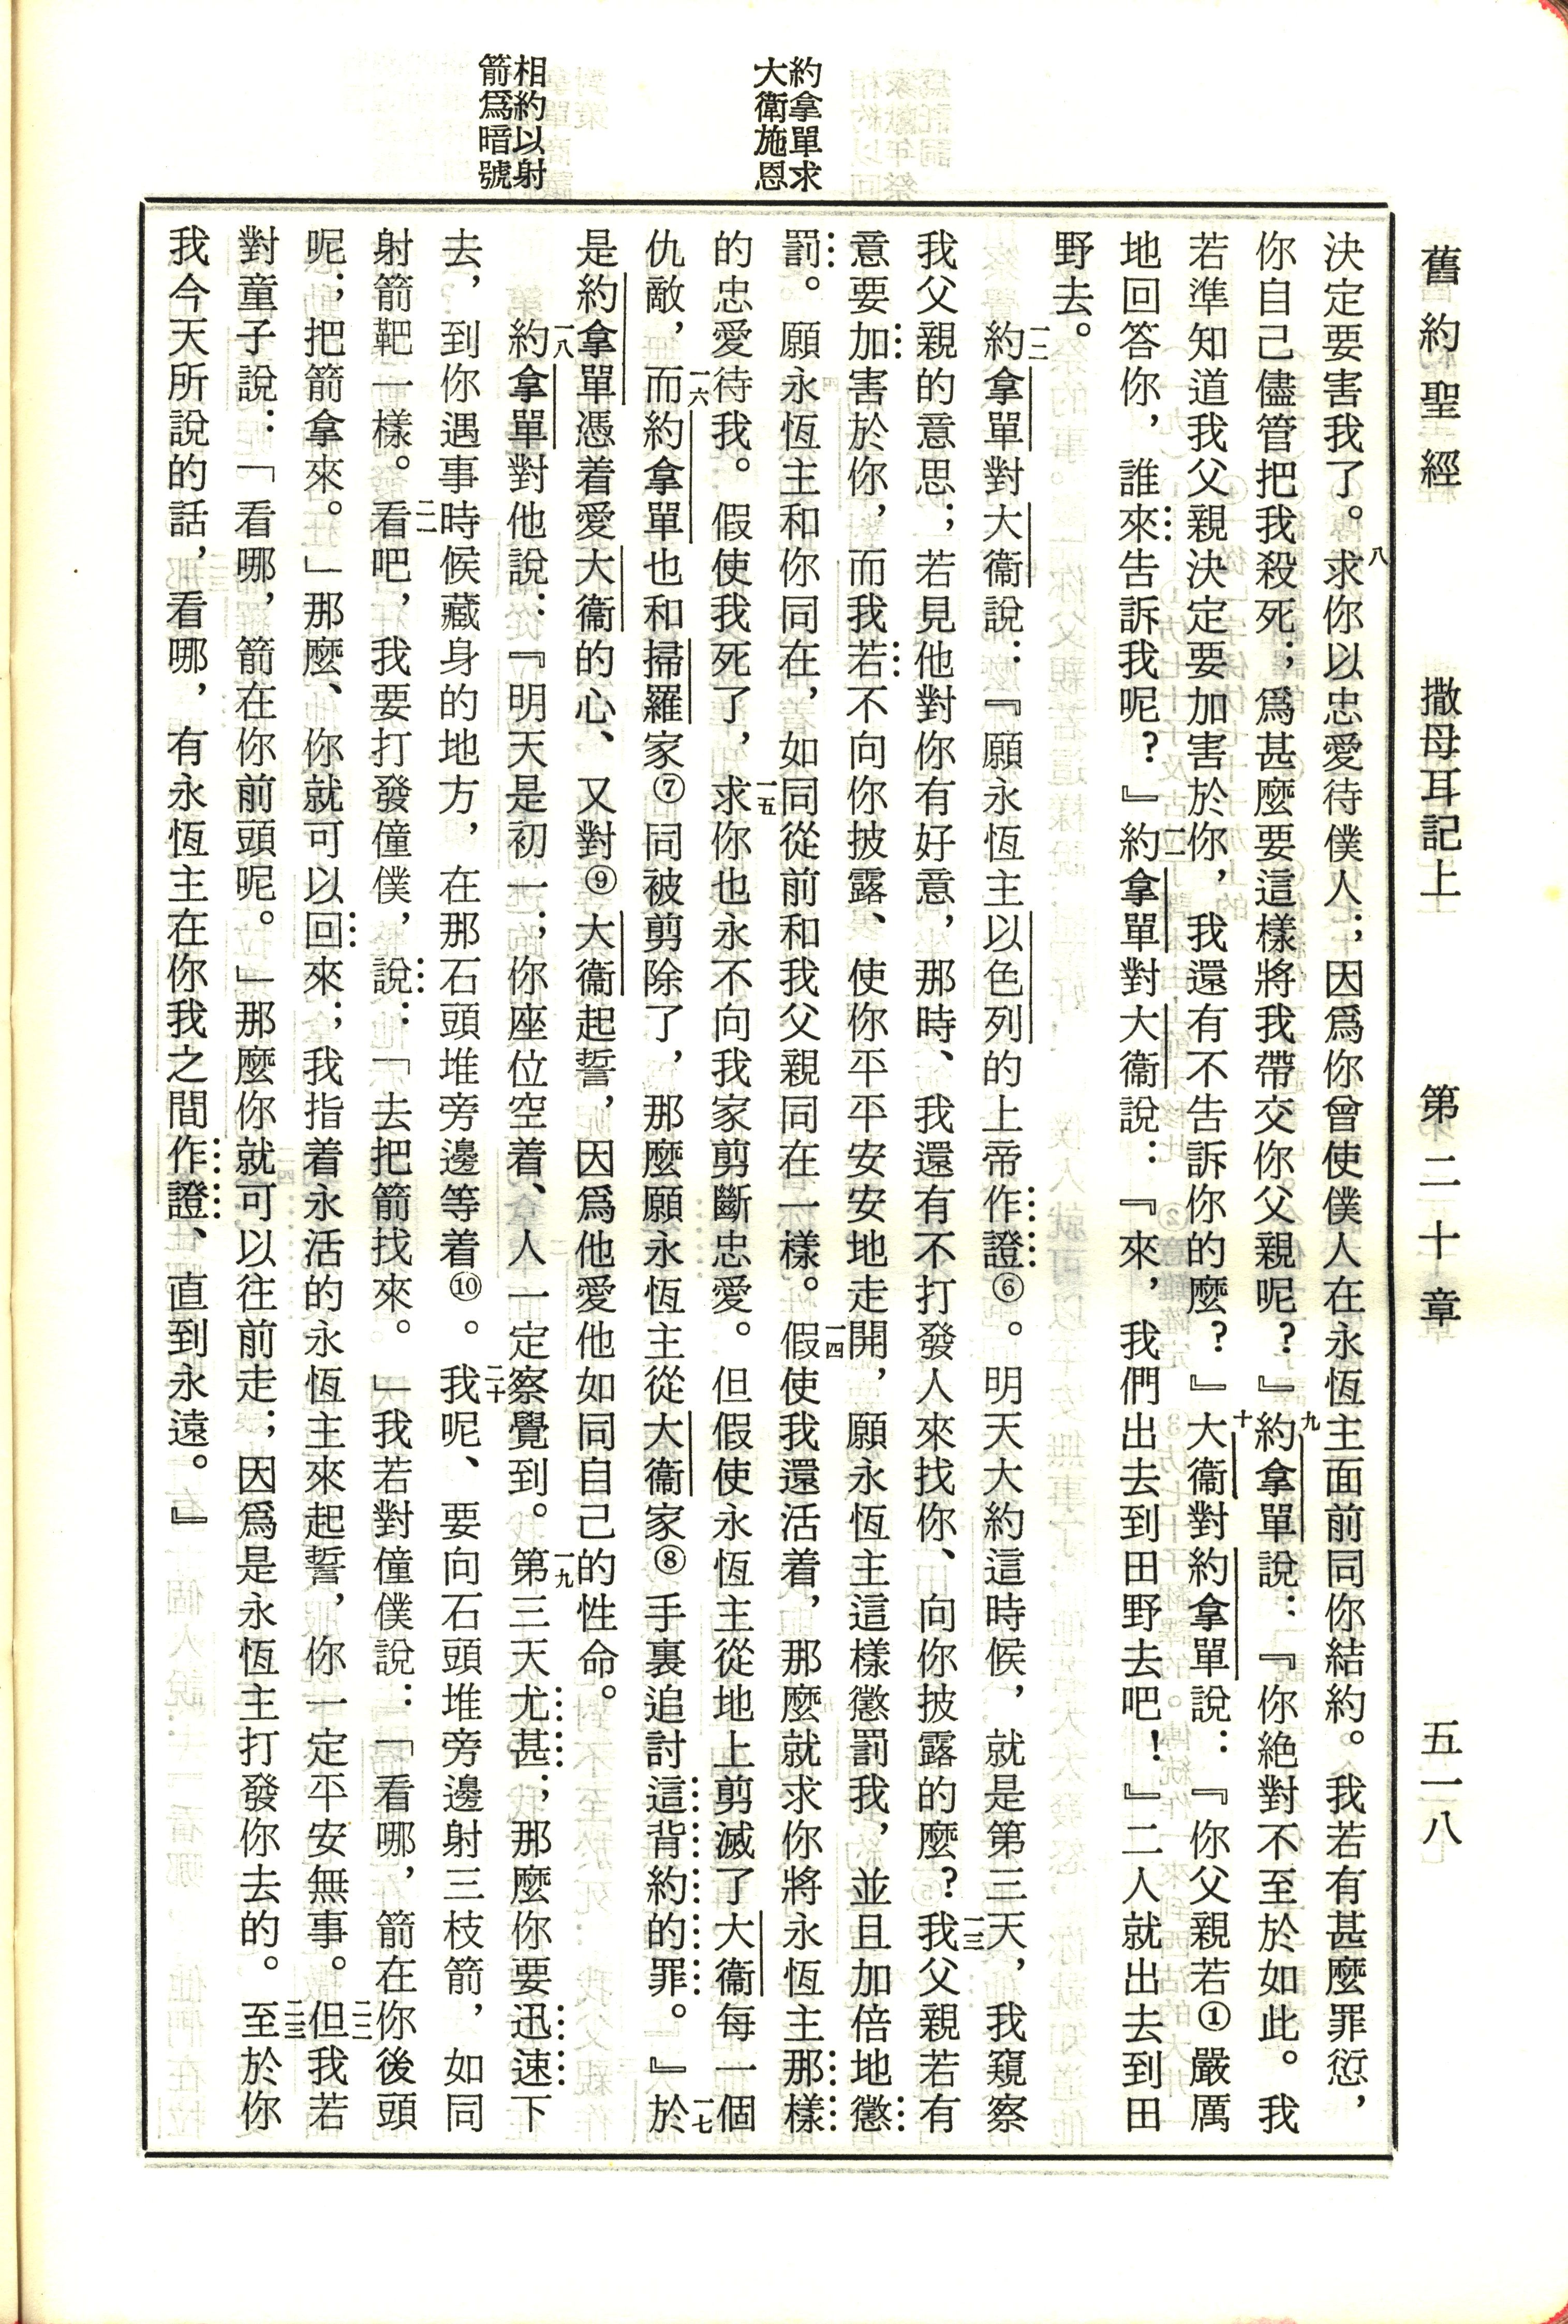 舊約聖經　撒母耳記上　第二十章　五一八
約拿單求
大衛施恩
相約以射
箭爲暗號
決定要害我了。八求你以忠愛待僕人；因爲你曾使僕人在永恆主面前同你結約。我若有甚麼罪愆，
你自己儘管把我殺死；爲甚麼要這樣將我帶交你父親呢？』九約拿單說：『你絕對不至於如此。我
若準知道我父親決定要加害於你，我還有不告訴你的麼？』十大衞對約拿單說：『你父親若①嚴厲
地回答你，誰來告訴我呢？』一一約拿單對大衞說：『來，我們出去到田野去吧！』二人就出去到田
野去。
一二約拿單對大衞說：『願永恆主以色列的上帝作證⑥。明天大約這時候，就是第三天，我窺察
我父親的意思；若見他對你有好意，那時、我還有不打發人來找你、向你披露的麼？一三我父親若有
意要加害於你，而我若不向你披露、使你平平安安地走開，願永恆主這樣懲罰我，並且加倍地懲
罰。願永恆主和你同在，如同從前和我父親同在一樣。一四假使我還活着，那麼就求你將永恆主那樣
的忠愛待我。假使我死了，一五求你也永不向我家剪斷忠愛。但假使永恆主從地上剪滅了大衞每一個
仇敵，一六而約拿單也和掃羅家⑦同被剪除了，那麼願永恆主從大衞家⑧手裏追討這背約的罪。』一七於
是約拿單憑着愛大衞的心、又對⑨大衞起誓，因爲他愛他如同自己的性命。
一八約拿單對他說：『明天是初一；你座位空着、人一定察覺到。一九第三天尤甚；那麼你要迅速下
去，到你遇事時候藏身的地方，在那石頭堆旁邊等着⑩。二十我呢、要向石頭堆旁邊射三枝箭，如同
射箭靶一樣。二一看吧，我要打發僮僕，說：「去把箭找來。」我若對僮僕說：「看哪，箭在你後頭
呢；把箭拿來。」那麼、你就可以回來；我指着永活的永恆主來起誓，你一定平安無事。二二但我若
對童子說：「看哪，箭在你前頭呢。」那麼你就可以往前走；因爲是永恆主打發你去的。二三至於你
我今天所說的話，看哪，有永恆主在你我之間作證、直到永遠。』